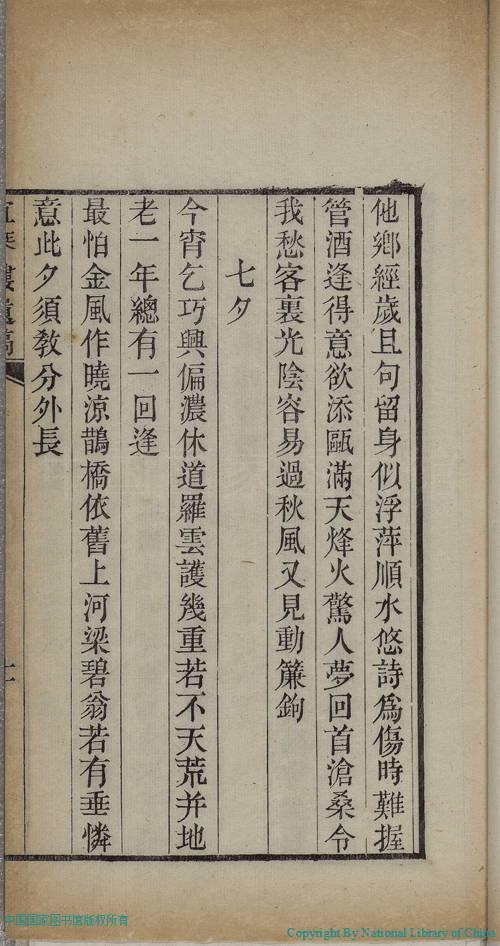 他鄉經歲且句留身似浮萍順水悠詩為傷時難握
管酒逢得意欲添甌滿天烽火驚人夢回首滄桑令
我愁客裏光陰容易過秋風又見動簾鉤
七夕
今宵乞巧興偏濃休道羅雲護幾重若不天荒并地
老一年總有一回逢
最怕金風作曉涼鵲橋依舊上河梁碧翁若有垂憐
意此夕須教分外長
樓遺稿
中国国家图书馆版权所有
Copyright By National Library of China